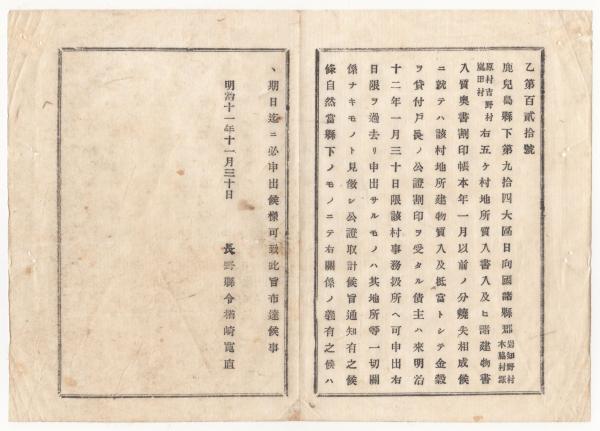 乙第百貳拾號
鹿兒島縣下第九拾四大區日向國諸縣郡岩知野村木脇村塚
原村吉野村嵐田村右五ケ村地所質入書入及ヒ諸建物書
入質奥書割印帳本年一月以前ノ分燒失相成候
ニ就テハ該村地所建物質入及抵當トシテ金穀
ヲ貸付戸長ノ公證割印ヲ受タル債主ハ來明治
十二年一月三十日限該村事務扱所ヘ可申出右
日限ヲ過去リ申出サルモノハ其地所等一切關
係ナキモノト見做シ公證取計候旨通知有之候
條自然當縣下ノモノニテ右關係ノ義有之候ハ
丶期日迄ニ必申出候樣可致此旨布達候事
明治十一年十一月三十日
長野縣令楢崎寬直